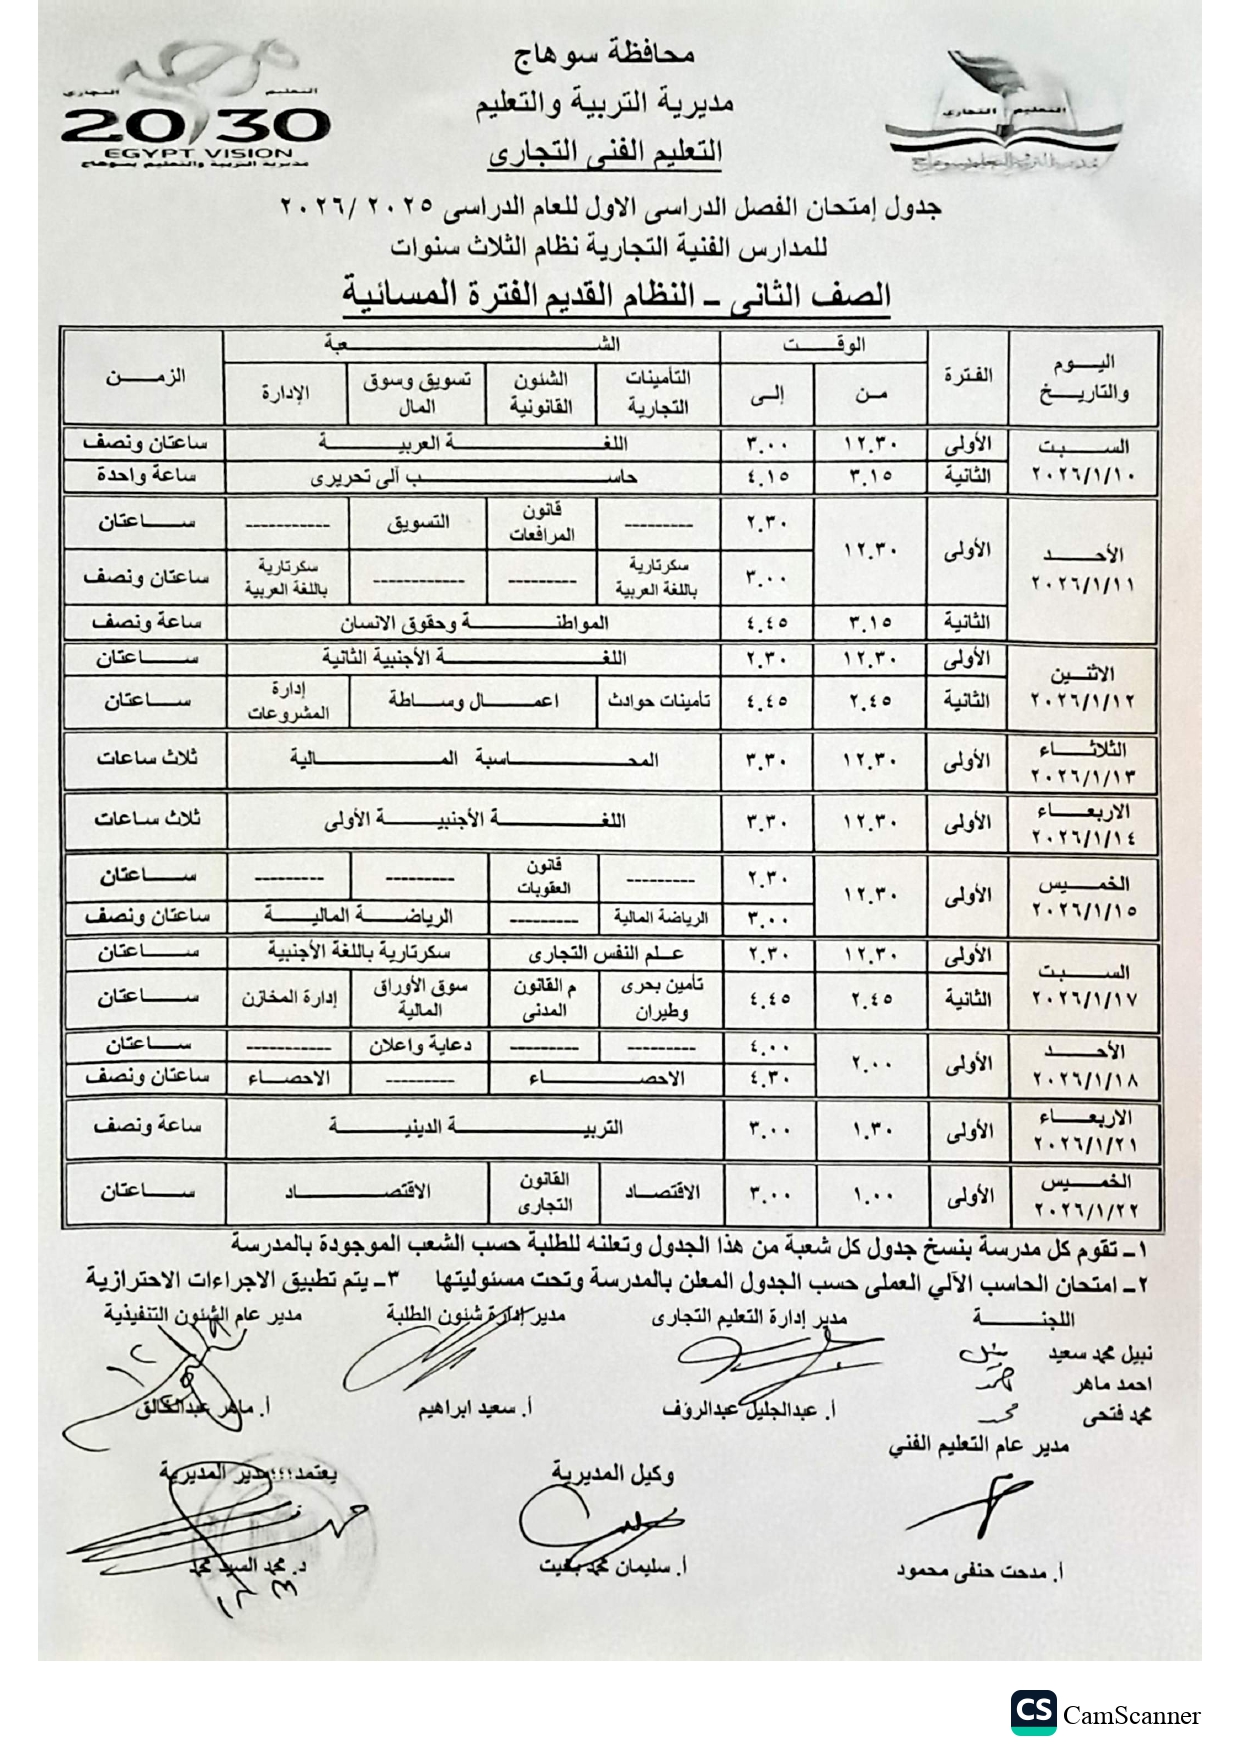 محافظة سوهاج
مديرية التربية والتعليم
التعليم الفنى التجارى
التعليم التجارى
2030
EGYPT VISION
مديرية التربية والتعليم بسوهاج
التعليم التجارى
مديرية التربية والتعليم بسوهاج
جدول إمتحان الفصل الدراسى الاول للعام الدراسى ٢٠٢٥ /٢٠٢٦
للمدارس الفنية التجارية نظام الثلاث سنوات
الصف الثانى – النظام القديم الفترة المسائية
اليوم والتاريخ | الفترة | الوقت | الشعبة | الزمن
من | إلى | التأمينات التجارية | الشئون القانونية | تسويق وسوق المال | الإدارة
السبت ٢٠٢٦/١/١٠ | الأولى | ١٢.٣٠ | ٣.٠٠ | اللغة العربية | ساعتان ونصف
الثانية | ٣.١٥ | ٤.١٥ | حاسب آلى تحريرى | ساعة واحدة
الأحد ٢٠٢٦/١/١١ | الأولى | ١٢.٣٠ | ٢.٣٠ | --------- | قانون المرافعات | التسويق | ----------- | ساعتان
٣.٠٠ | سكرتارية باللغة العربية | --------- | ------------ | سكرتارية باللغة العربية | ساعتان ونصف
الثانية | ٣.١٥ | ٤.٤٥ | المواطنة وحقوق الانسان | ساعة ونصف
الاثنين ٢٠٢٦/١/١٢ | الأولى | ١٢.٣٠ | ٢.٣٠ | اللغة الأجنبية الثانية | ساعتان
الثانية | ٢.٤٥ | ٤.٤٥ | تأمينات حوادث | اعمال وساطة | إدارة المشروعات | ساعتان
الثلاثاء ٢٠٢٦/١/١٣ | الأولى | ١٢.٣٠ | ٣.٣٠ | المحاسبة المالية | ثلاث ساعات
الاربعاء ٢٠٢٦/١/١٤ | الأولى | ١٢.٣٠ | ٣.٣٠ | اللغة الأجنبية الأولى | ثلاث ساعات
الخميس ٢٠٢٦/١/١٥ | الأولى | ١٢.٣٠ | ٢.٣٠ | --------- | قانون العقوبات | --------- | --------- | ساعتان
٣.٠٠ | الرياضة المالية | --------- | الرياضة المالية | ساعتان ونصف
السبت ٢٠٢٦/١/١٧ | الأولى | ١٢.٣٠ | ٢.٣٠ | علم النفس التجارى | سكرتارية باللغة الأجنبية | ساعتان
الثانية | ٢.٤٥ | ٤.٤٥ | تأمين بحرى وطيران | م القانون المدنى | سوق الأوراق المالية | إدارة المخازن | ساعتان
الأحد ٢٠٢٦/١/١٨ | الأولى | ٢.٠٠ | ٤.٠٠ | --------- | --------- | دعاية واعلان | ----------- | ساعتان
٤.٣٠ | الاحصاء | --------- | الاحصاء | ساعتان ونصف
الاربعاء ٢٠٢٦/١/٢١ | الأولى | ١.٣٠ | ٣.٠٠ | التربية الدينية | ساعة ونصف
الخميس ٢٠٢٦/١/٢٢ | الأولى | ١.٠٠ | ٣.٠٠ | الاقتصاد | القانون التجارى | الاقتصاد | ساعتان
١– تقوم كل مدرسة بنسخ جدول كل شعبة من هذا الجدول وتعلنه للطلبة حسب الشعب الموجودة بالمدرسة
٢– امتحان الحاسب الآلي العملى حسب الجدول المعلن بالمدرسة وتحت مسئوليتها ٣– يتم تطبيق الاجراءات الاحترازية
اللجنة مدير إدارة التعليم التجارى مدير إدارة شئون الطلبة مدير عام الشئون التنفيذية
نبيل محمد سعيد
احمد ماهر
محمد فتحى أ. عبدالجليل عبدالرؤف أ. سعيد ابراهيم أ. ماهر عبدالخالق
مدير عام التعليم الفني وكيل المديرية يعتمد؛؛؛مدير المديرية
أ. مدحت حنفى محمود أ. سليمان محمد بخيت د. محمد السيد محمد
CS CamScanner